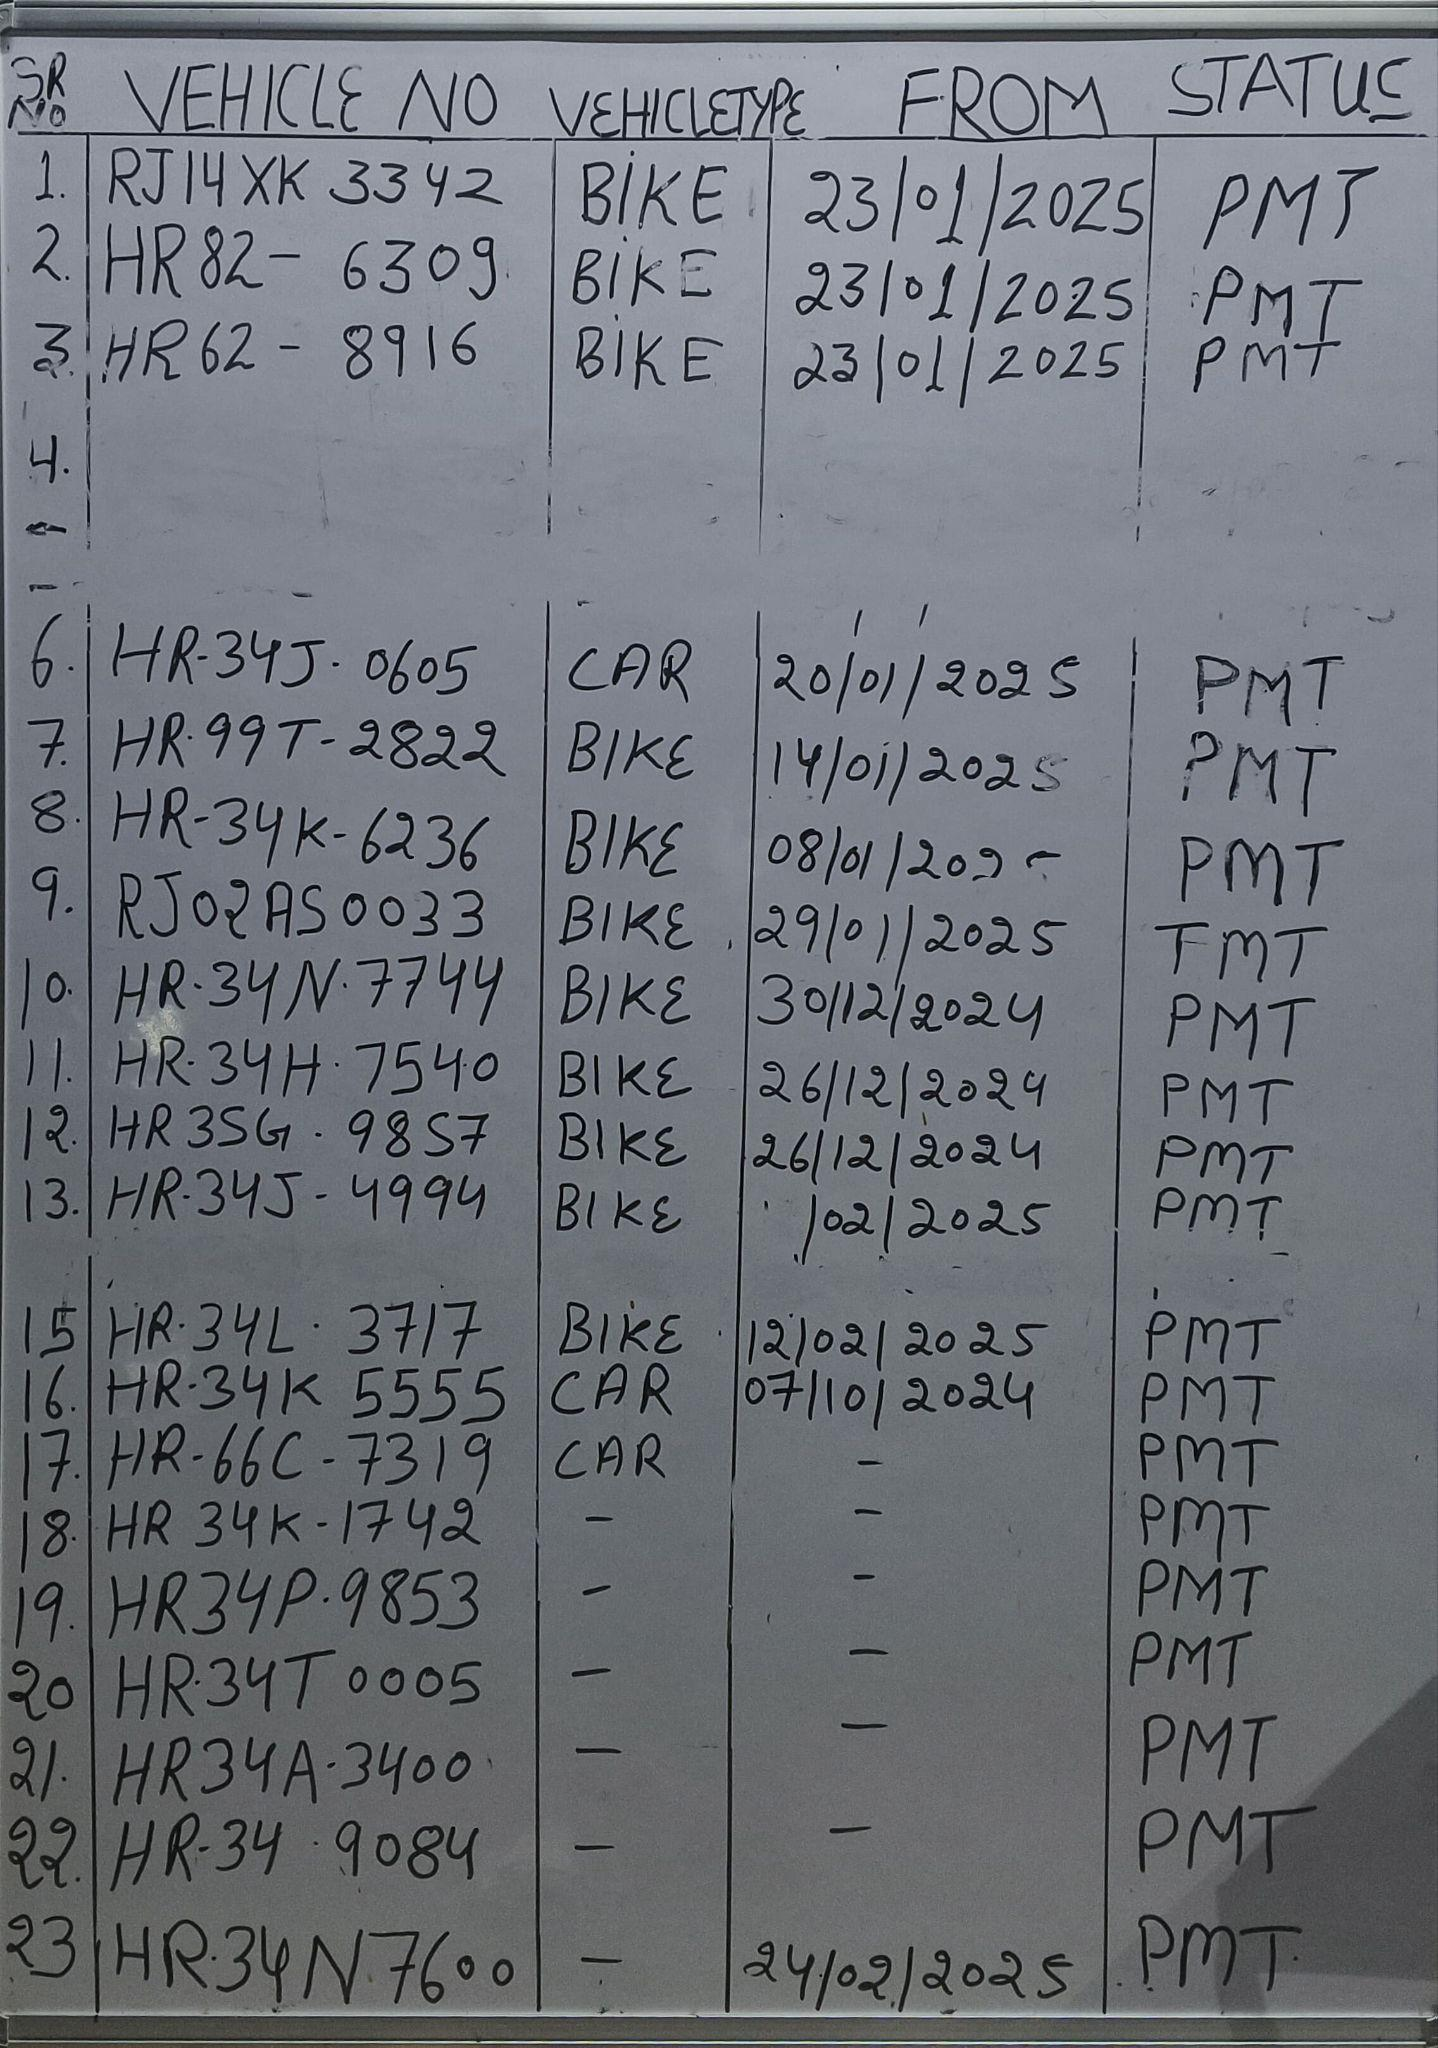 SR NO VEHICLE NO VEHICLETYPE FROM STATUS
1. RJ14XK 3342 BIKE 23/01/2025 PMT
2. HR82- 6309 BIKE 23/01/2025 PMT
3. HR62- 8916 BIKE 23/01/2025 PMT
4.
6. HR-34J- 0605 CAR 20/01/2025 PMT
7. HR-99T-2822 BIKE 14/01/2025 PMT
8. HR-34K-6236 BIKE 08/01/ PMT
9. RJ02AS0033 BIKE 29/01/2025 TMT
10. HR-34N-7744 BIKE 30/12/2024 PMT
11. HR-34H-7540 BIKE 26/12/2024 PMT
12. HR35G-9857 BIKE 26/12/2024 PMT
13. HR-34J-4994 BIKE /02/2025 PMT
15 HR-34L- 3717 BIKE 12/02/2025 PMT
16. HR-34K 5555 CAR 07/10/2024 PMT
17. HR-66C-7319 CAR - PMT
18. HR 34K-1742 - - PMT
19. HR34P-9853 - - PMT
20 HR-34T 0005 - - PMT
21. HR34A-3400 - - PMT
22. HR-34 9084 - - PMT
23 HR-34N7600 - 24/02/2025 PMT